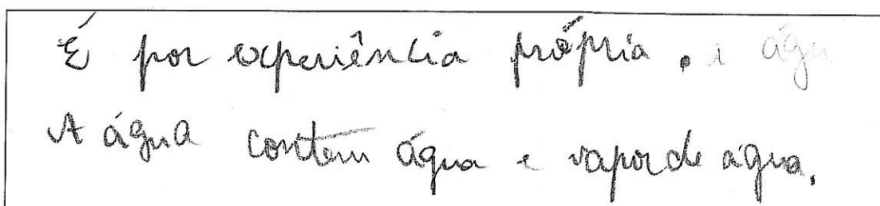 É por experiência própria.
A água contém água e vapor de água.